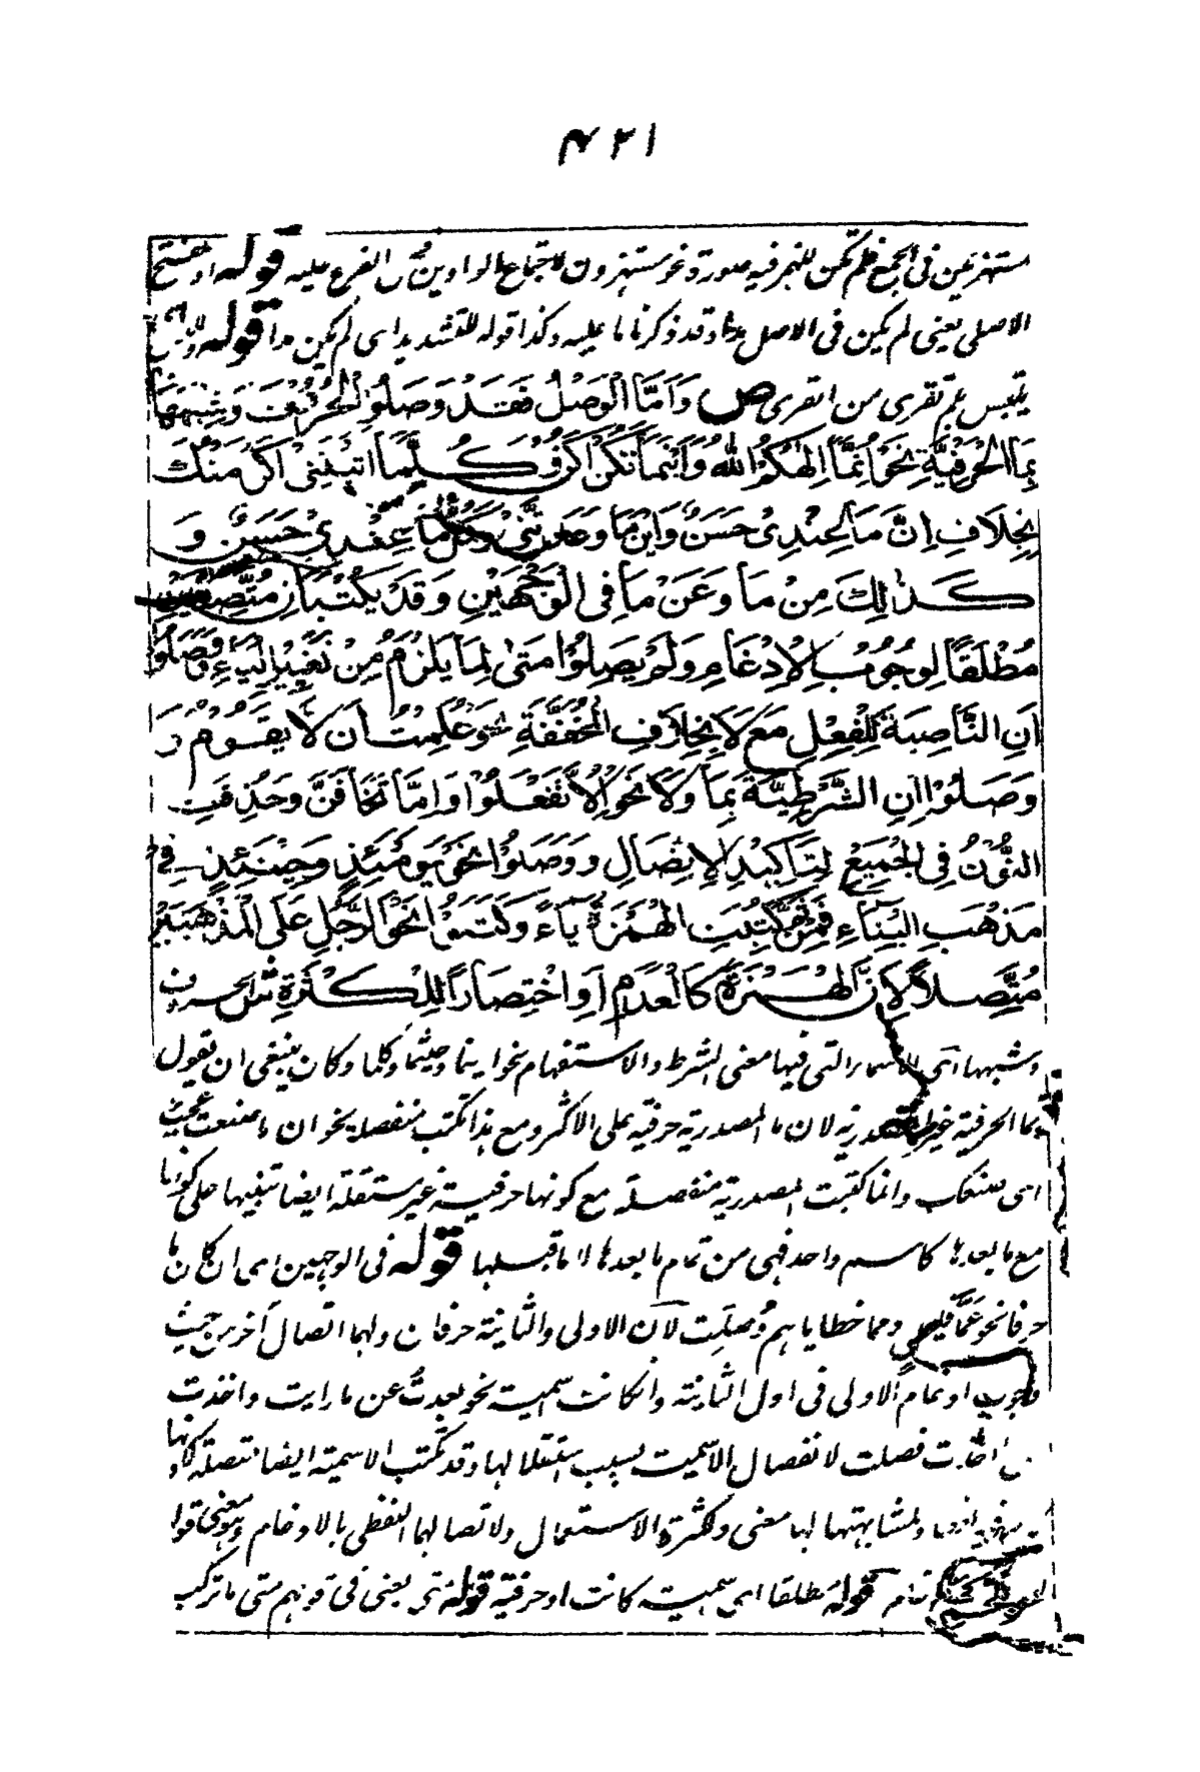 ٤٢١
مستهزئين فى الجمع فلم تكن للهمز فيه صورة نحو مستهزؤن لاجتماع الواوين الفرع عليه قوله او يفتح
الاصلى يعنى لم يكن فى الاصل وقد ذكرنا ما عليه وكذا قوله للتشديد اى لم يكن مدا قوله
يلتبس بلم تقرى من القرى ص وَاَمَّا الْوَصْلُ فَقَدْ وَصَلُوا الْحُرُوْفَ وَشِبْهَهَا
بِمَا الْحَرْفِيَّةِ نَحْوُ اِنَّمَا اِلٰهُكُمُ اللّٰهُ وَاَيْنَمَا تَكُنْ اَكُنْ وَكُلَّمَا اَتَيْتَنِيْ اَكْرَمْتُكَ
بِخِلَافِ اِنَّ مَا عِنْدِيْ حَسَنٌ وَاَيْنَ مَا وَعَدْتَّنِيْ وَكُلُّ مَا عِنْدِيْ حَسَنٌ وَ
كَذٰلِكَ مِنْ مَا وَعَنْ مَا فِى الْوَجْهَيْنِ وَقَدْ يُكْتَبَانِ مُتَّصِلَيْنِ
مُطْلَقًا لِوُجُوْبِ الْاِدْغَامِ وَلَمْ يَصِلُوْا مَتٰى لِمَا يَلْزَمُ مِنْ تَغْيِيْرِ الْيَاءِ وَوَصَلُوْا
اَنِ النَّاصِبَةَ لِلْفِعْلِ مَعَ لَا بِخِلَافِ الْمُخَفَّفَةِ نَحْوُ عَلِمْتُ اَنْ لَا يَقُوْمُ وَ
وَصَلُوْا اِنِ الشَّرْطِيَّةَ بِمَا وَلَا نَحْوُ اِلَّا تَفْعَلُوْا وَاِمَّا تَخَافَنَّ وَحُذِفَتِ
النُّوْنُ فِى الْجَمِيْعِ لِتَاكِيْدِ الْاِتِّصَالِ وَوَصَلُوْا نَحْوَ يَوْمَئِذٍ وَحِيْنَئِذٍ فِىْ
مَذْهَبِ الْبِنَاءِ فَمِنْ ثَمَّ كُتِبَتِ الْهَمْزَةُ يَاءً وَكَتَبُوْا نَحْوَ الرَّجُلِ عَلَى الْمَذْهَبَيْنِ
مُتَّصِلًا لِاَنَّ الْهَمْزَةَ كَالْعَدَمِ اَوِ اخْتِصَارًا لِلْكَثْرَةِ ش الحروف
وشبهها اى الاسماء التى فيها معنى الشرط والاستفهام نحو اينما وحيثما وكلما وكان ينبغى ان يقول
بما الحرفية غير المصدرية لان ما المصدرية حرفية على الاكثر ومع هذا تكتب منفصلة نحو ان ما صنعت عجيب
اى صنعك وانما كتبت المصدرية منفصلة مع كونها حرفية غير مستقلة ايضا تنبيها على كونها
مع ما بعدها كاسم واحد فهى من تمام ما بعدها لا ما قبلها قوله فى الوجهين اى ان كان ما
حرفا نحو عما قليل ومما خطاياهم وصلت لان الاولى والثانية حرفان ولهما اتصال آخر من حيث
وجوب ادغام الاولى فى اول الثانية وان كانت اسمية نحو بعدت عن ما رايت واخذت
ما اخذت فصلت لانفصال الاسمية بسبب استقلالها وقد تكتب الاسمية ايضا متصلة لكونها
ولمشابهتها لها معنى وكثرة الاستعمال ولاتصالهما اللفظى بالادغام وهو معنى قوله
قوله مطلقا اى اسمية كانت او حرفية قوله متى يعنى فى قولهم متى ما تركب